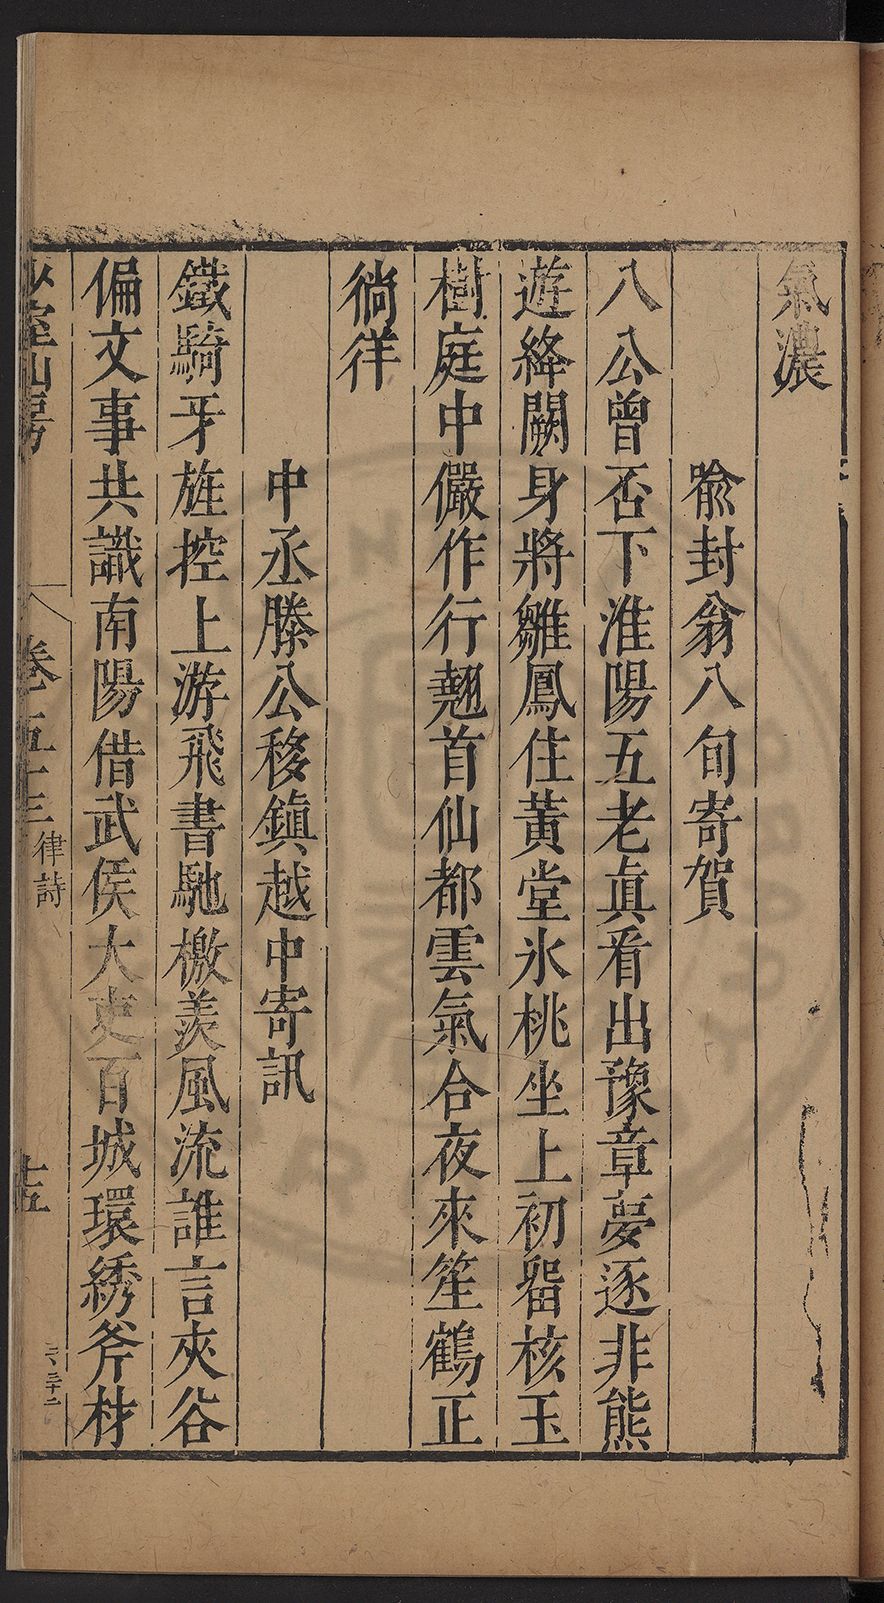 氣濃
喩封翁八旬寄賀
八公曾否下淮陽五老眞看出豫章夢逐非熊
遊絳闕身將雛鳳住黃堂氷桃坐上初畱核玉
樹庭中儼作行翹首仙都雲氣合夜來笙鶴正
徜徉
中丞滕公移鎭越中寄訊
鐵騎牙旌控上游飛書馳檄羨風流誰言夾谷
偏文事共識南陽借武侯大吏百城環綉斧材
少室山房
卷五十三
律詩
十五